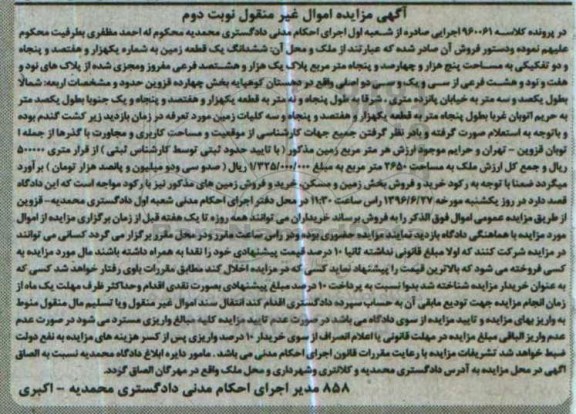 آگهی مزایده اموال غیر منقول نوبت دوم
در پرونده کلاسه ۹۶۰۰۶۱ اجرایی صادره از شعبه اول اجرای احکام مدنی دادگستری محمدیه محکوم له احمد مظفری بطرفیت محکوم
علیهم نموده ودستور فروش آن صادر شده که عبارتند از ملک و محل آن: ششدانگ یک قطعه زمین به شماره یکهزار و هفتصد و پنجاه
و دو تفکیکی به مساحت پنج هزار و چهارصد و پنجاه متر مربع پلاک یک هزار و هشتصد فرعی مفروز ومجزی شده از پلاک های نود و
هفت و نود و هشت فرعی از سی و یک و سی دو اصلی واقع در دهستان کوهپایه بخش چهارده قزوین حدود و مشخصات اربعه: شمالا
بطول یکصد و سه متر به خیابان پانزده متری . شرقا به طول پنجاه و نه متر به قطعه یکهزار و هفتصد و پنجاه و یک جنوبا بطول یکصد متر
به حریم اتوبان غربا بطول پنجاه متر به قطعه یکهزار و هفتصد و پنجاه و سه کلیات زمین مورد تعرفه در زمان بازدید زیر کشت گندم بوده
و باتوجه به استعلام صورت گرفته و بادر نظر گرفتن جمیع جهات کارشناسی از موقعیت و مساحت کاربری و مجاورت با گذرها از جمله ا
توبان قزوین - تهران و حرایم موجود ارزش هر متر مربع زمین مذکور ( با تایید حدود ثبتی توسط کارشناس ثبتی ) از قرار متری ۵۰۰۰۰۰
ریال و جمع کل ارزش ملک به مساحت ۲۶۵۰ متر مربع به مبلغ ۱/۳۲۵/۰۰۰/۰۰۰ ریال ( صدو سی ودو میلیون و پانصد هزار تومان ) برآورد
میگردد ضمنا با توجه به رکود خرید و فروش بخش زمین و مسکن، خرید و فروش زمین های مذکور نیز با رکود مواجه است که این دادگاه
قصد دارد در روز یکشنبه مورخه ۱۳۹۶/۶/۲۷ راس ساعت ۱۱:۳۰ در محل دفتر اجرای احکام مدنی شعبه اول دادگستری محمدیه- قزوین
از طریق مزایده عمومی اموال فوق الذکر را به فروش برساند خریداران می توانند همه روزه تا یک هفته قبل از زمان برگزاری مزایده از اموال
مورد مزایده با هماهنگی دادگاه بازدید نمایند مزایده حضوری بوده ودر راس ساعت مقرر ودر محل مقرر برگزار می گردد کسانی می توانند
در مزایده شرکت کنند که اولا مبلغ قانونی نداشته ثانیا ۱۰ درصد قیمت پیشنهادی خود را نقدا به همراه داشته باشند مال مورد مزایده به
کسی فروخته می شود که بالاترین قیمت را پیشنهاد نماید کسی که در مزایده اخلال کند مطابق مقررات باوی رفتار خواهد شد کسی که
به عنوان خریدار مزایده شناخته شد بدوا نسبت به پرداخت ۱۰ درصد مبلغ پیشنهادی بصورت نقدی اقدام وحداکثر ظرف مهلت یک ماه از
زمان انجام مزایده جهت تودیع مابقی آن به حساب سپرده دادگستری اقدام کند انتقال سند اموال غیر منقول ویا تسلیم مال منقول منوط
به واریز بهای مزایده و تایید مزایده از سوی دادگاه می باشد در صورت عدم تایید مزایده کلیه مبالغ واریزی مسترد می شود در صورت عدم
عدم واریز الباقی مبلغ مزایده در مهلت قانونی یا اعلام انصراف از سوی خریدار ۱۰ درصد واریزی پس از کسر هزینه های مزایده به نفع دولت
ضبط خواهد شد تشریفات مزایده با رعایت مقررات قانون اجرای احکام مدنی می باشد . مامور دایره ابلاغ دادگاه محمدیه نسبت به الصاق
آگهی در محل مزایده به آدرس دادگستری محمدیه و کلانتری وشهرداری و محل ملک واقع در مهرگان الصاق گردد.
۸۵۸ مدیر اجرای احکام مدنی دادگستری محمدیه - اکبری